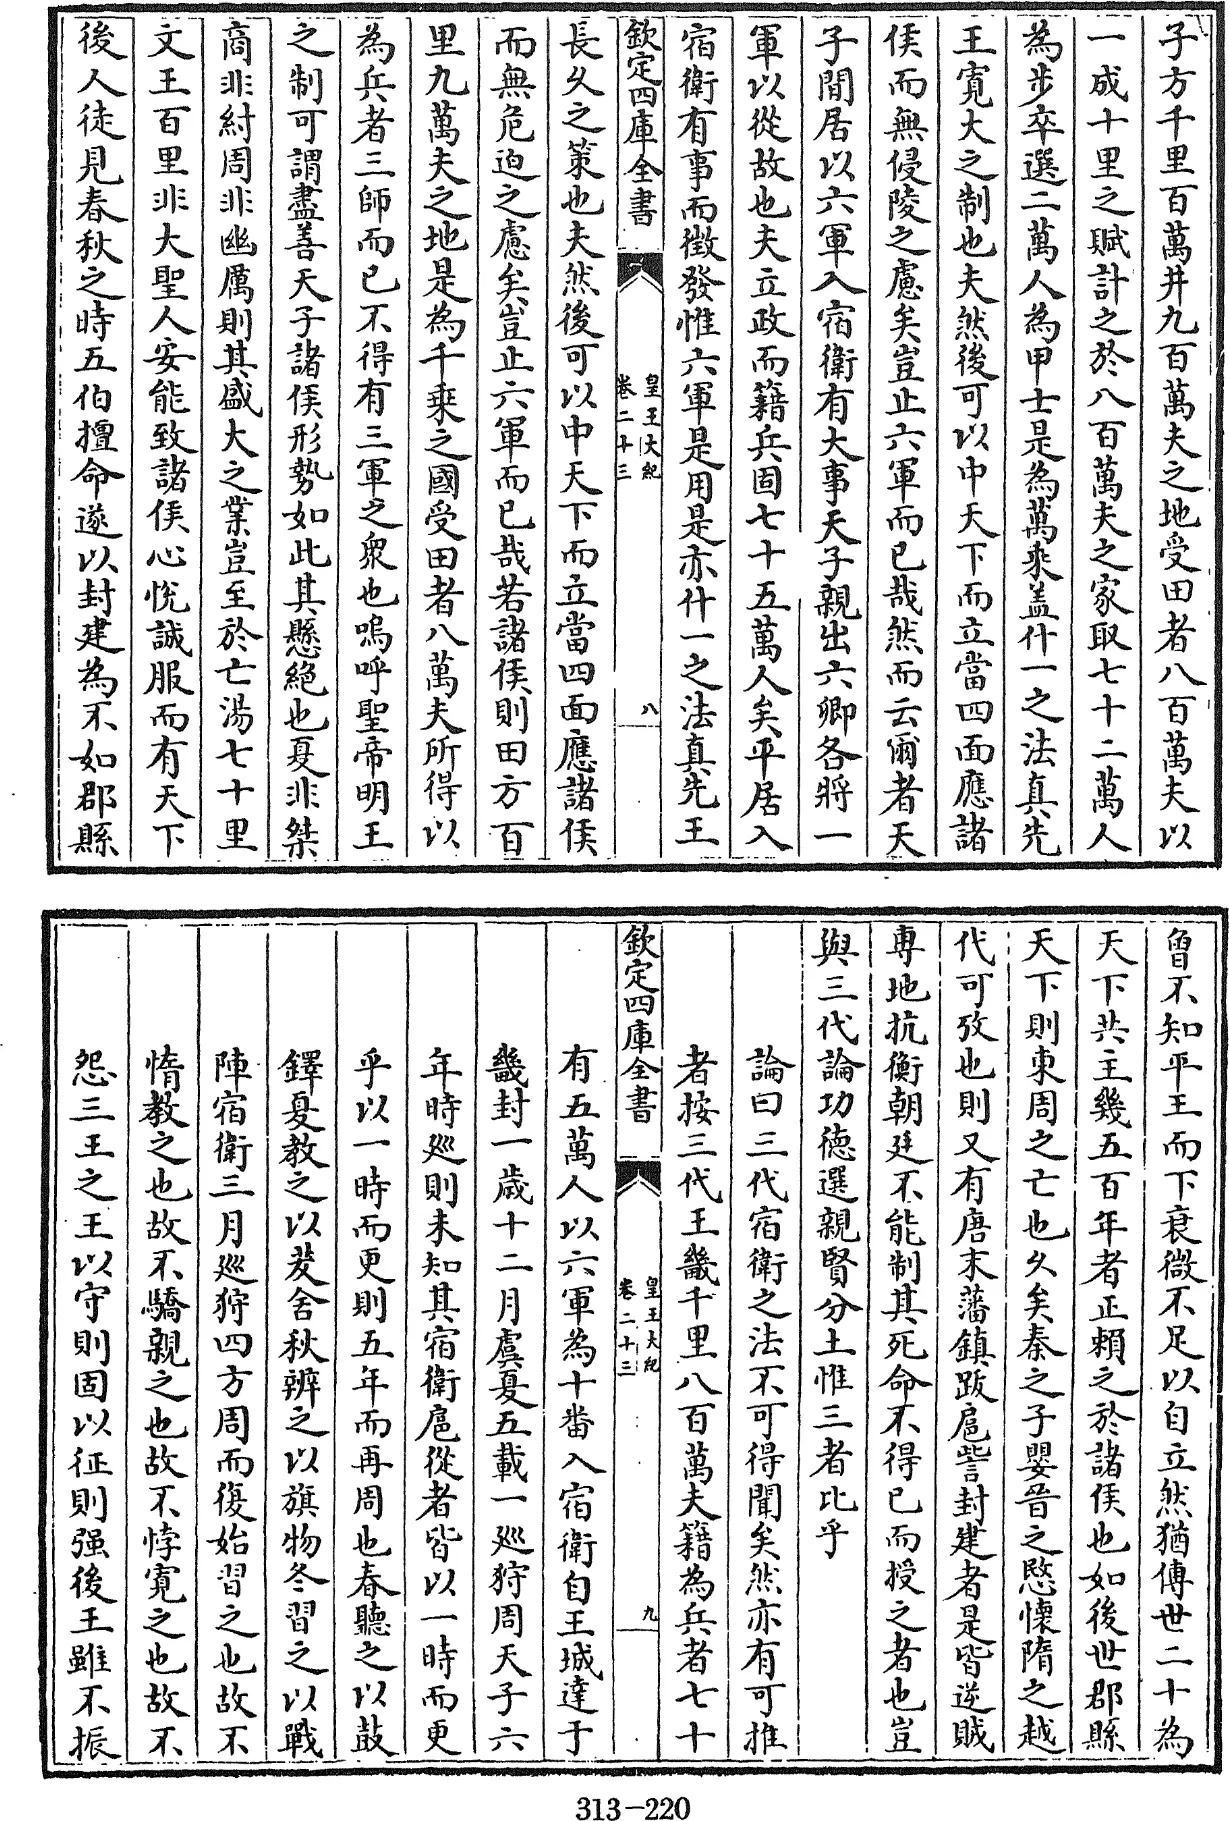 子方千里百萬井九百萬夫之地受田者八百萬夫以
一成十里之賦計之於八百萬夫之家取七十二萬人
為步卒選二萬人為甲士是為萬乘盖什一之法真先
王寛大之制也夫然後可以中天下而立當四面應諸
侯而無侵陵之慮矣豈止六軍而已哉然而云爾者天
子間居以六軍入宿衛有大事天子親出六卿各將一
軍以從故也夫立政而籍兵固七十五萬人矣平居入
宿衛有事而徴發惟六軍是用是亦什一之法真先王
欽定四庫全書
皇王大紀
卷二十三
八
長久之策也夫然後可以中天下而立當四面應諸侯
而無危迫之慮矣豈止六軍而已哉若諸侯則田方百
里九萬夫之地是為千乘之國受田者八萬夫所得以
為兵者三師而已不得有三軍之衆也嗚呼聖帝明王
之制可謂盡善天子諸侯形勢如此其懸絶也夏非桀
商非紂周非幽厲則其盛大之業豈至於亡湯七十里
文王百里非大聖人安能致諸侯心悅誠服而有天下
後人徒見春秋之時五伯擅命遂以封建為不如郡縣
曾不知平王而下衰微不足以自立然猶傳世二十為
天下共主幾五百年者正賴之於諸侯也如後世郡縣
天下則東周之亡也久矣秦之子嬰晉之愍懷隋之越
代可攷也則又有唐末藩鎮跋扈訾封建者是皆逆賊
専地抗衡朝廷不能制其死命不得已而授之者也豈
與三代論功德選親賢分土惟三者比乎
論曰三代宿衛之法不可得聞矣然亦有可推
者按三代王畿千里八百萬夫籍為兵者七十
欽定四庫全書
皇王大紀
卷二十三
九
有五萬人以六軍為十番入宿衛自王城達于
畿封一歲十二月虞夏五載一廵狩周天子六
年時廵則未知其宿衛扈從者皆以一時而更
乎以一時而更則五年而再周也春聽之以鼓
鐸夏教之以茇舍秋辨之以旗物冬習之以戰
陣宿衛三月廵狩四方周而復始習之也故不
惰教之也故不驕親之也故不悖寛之也故不
怨三王之王以守則固以征則强後王雖不振
313-220